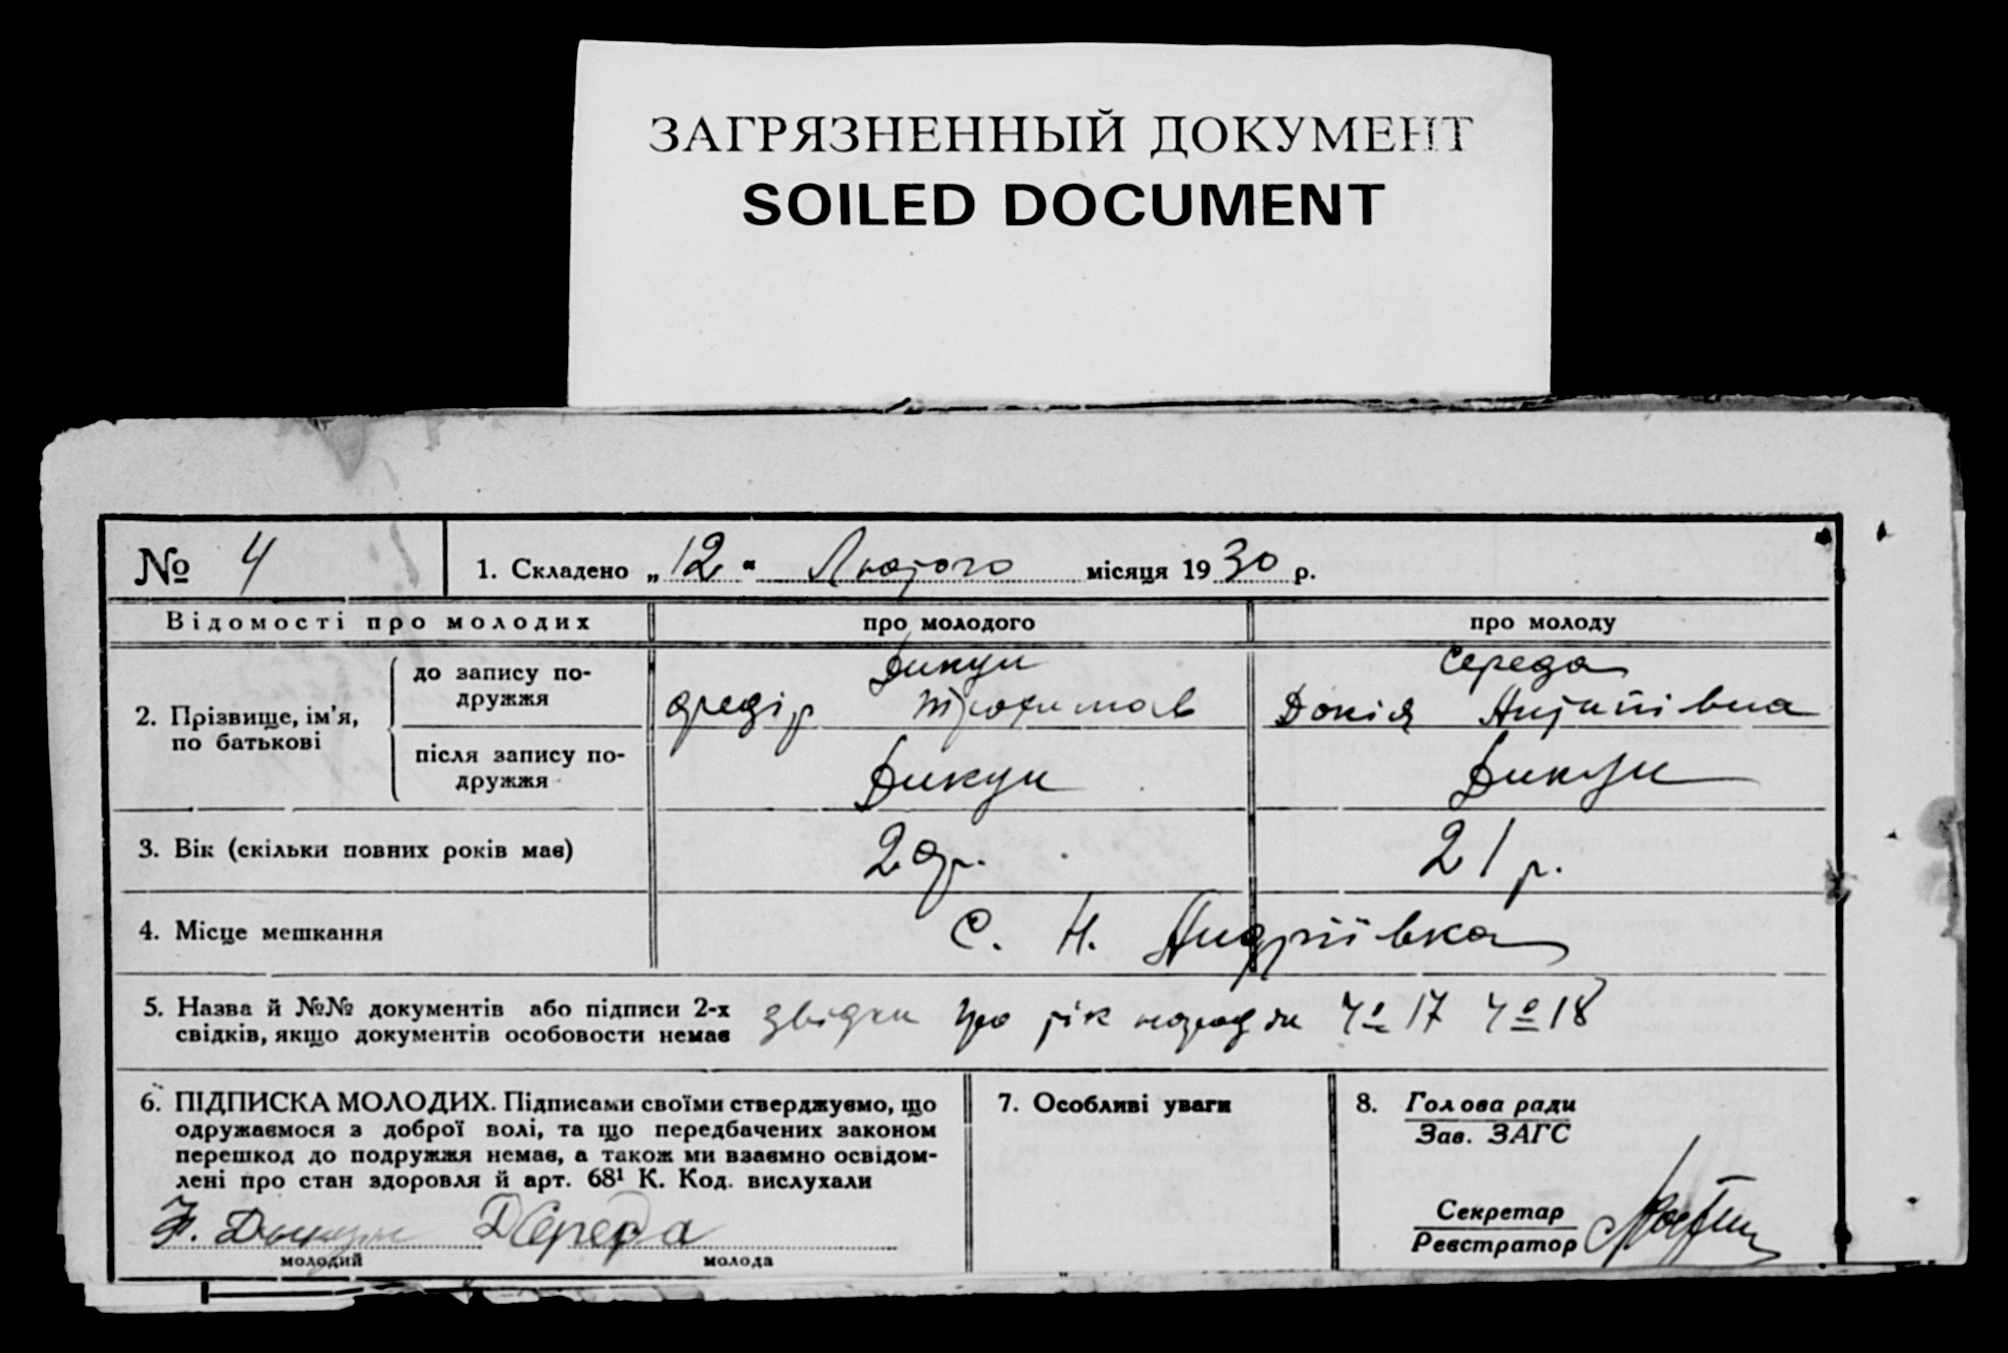 ЗАГРЯЗНЕННЫЙ ДОКУМЕНТ
SOILED DOCUMENT
№ 4
1. Складено „12“ Лютого місяця 1930 р.
Відомості про молодих
про молодого
про молоду
2. Прізвище, ім’я, по батькові
до запису подружжя
Дикун
Федір Трохимов
Середа
Докія Антипівна
після запису подружжя
Дикун
Дикун
3. Вік (скільки повних років має)
20 р.
21 р.
4. Місце мешкання
С. Н. Андріївка
5. Назва й №№ документів або підписи 2-х
свідків, якщо документів особовости немає
звідки про рік народж 4º 17 4º 18
6. ПІДПИСКА МОЛОДИХ. Підписами своїми стверджуємо, що
одружаємося з доброї волі, та що передбачених законом
перешкод до подружжя немає, а також ми взаємно освідом-
лені про стан здоровля й арт. 68¹ К. Код. вислухали
Ф. Дикун
молодий
Д Середа
молода
7. Особливі уваги
8. Голова ради
Зав. ЗАГС
Секретар
Реєстратор